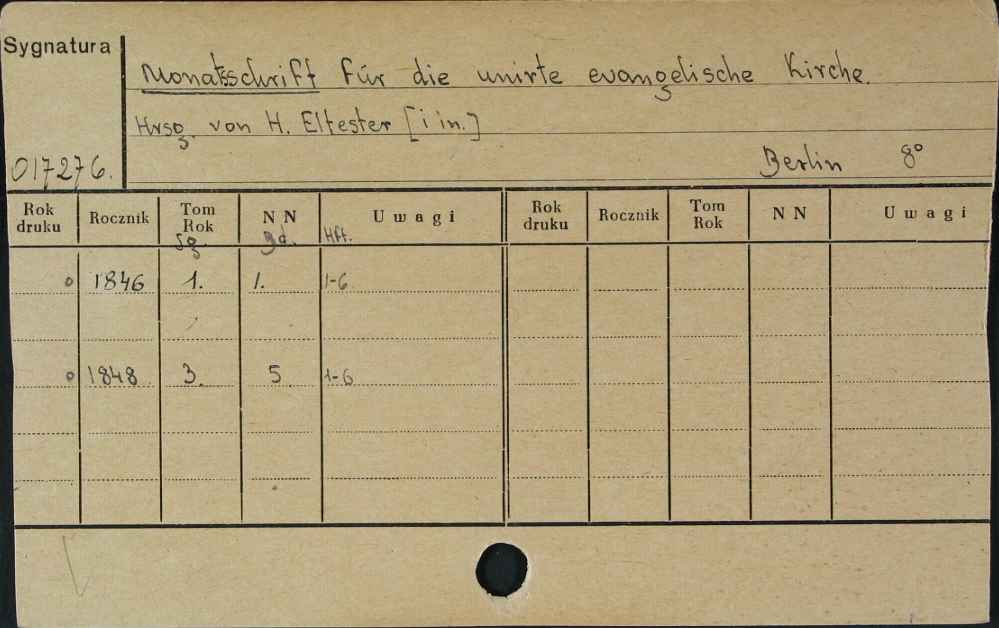 Sygnatura
Monatsschrift für die unirte evangelische Kirche.
Hrsg. von H. Eltester [i in.]
Berlin 8°
017276.
Rok druku Rocznik Tom Rok N N U w a g i Rok druku Rocznik Tom Rok N N U w a g i
Jg. Bd. Hft.
1846 1. 1. 1-6
1848 3. 5 1-6